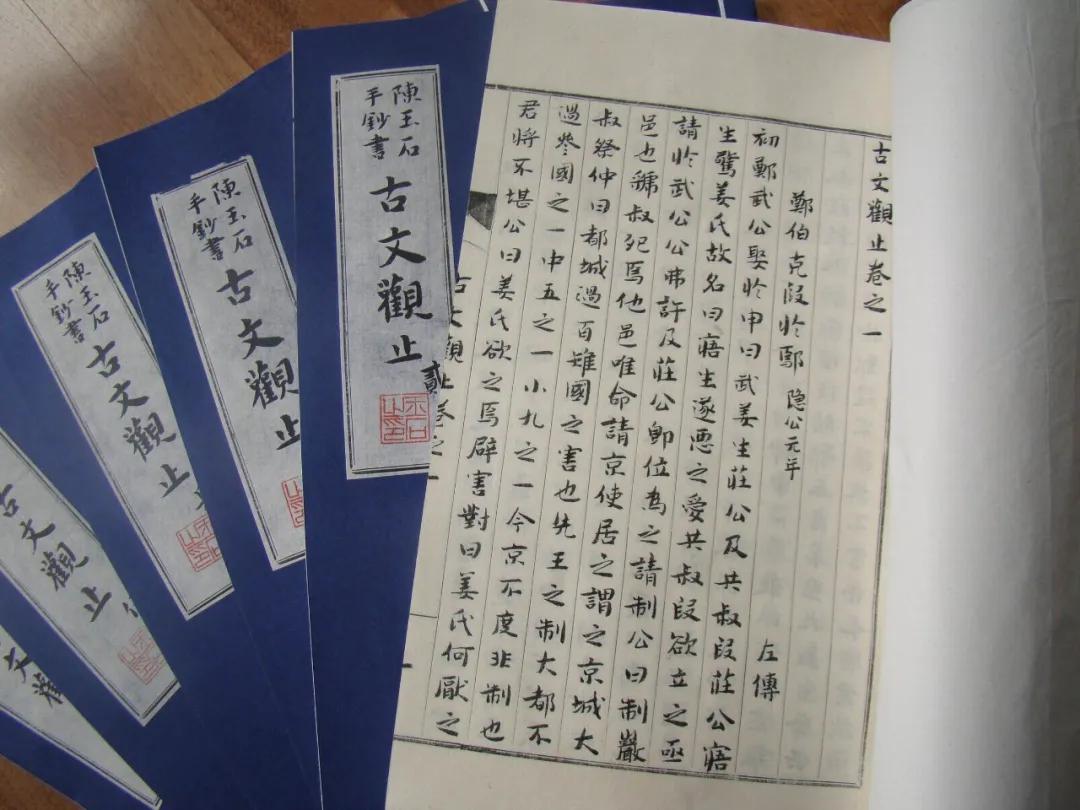 古文觀止卷之一
鄭伯克段於鄢 隱公元年 左傳
初鄭武公娶於申曰武姜生莊公及共叔段莊公寤
生驚姜氏故名曰寤生遂惡之愛共叔段欲立之亟
請於武公公弗許及莊公卽位為之請制公曰制巖
邑也虢叔死焉他邑唯命請京使居之謂之京城大
叔祭仲曰都城過百雉國之害也先王之制大都不
過參國之一中五之一小九之一今京不度非制也
君將不堪公曰姜氏欲之焉辟害對曰姜氏何厭之
古文觀止卷之一
一
陳玉石
手鈔書
古文觀止 貳
陳玉石
手鈔書
古文觀止
陳玉石
手鈔書
古文觀止
古文觀止
文觀